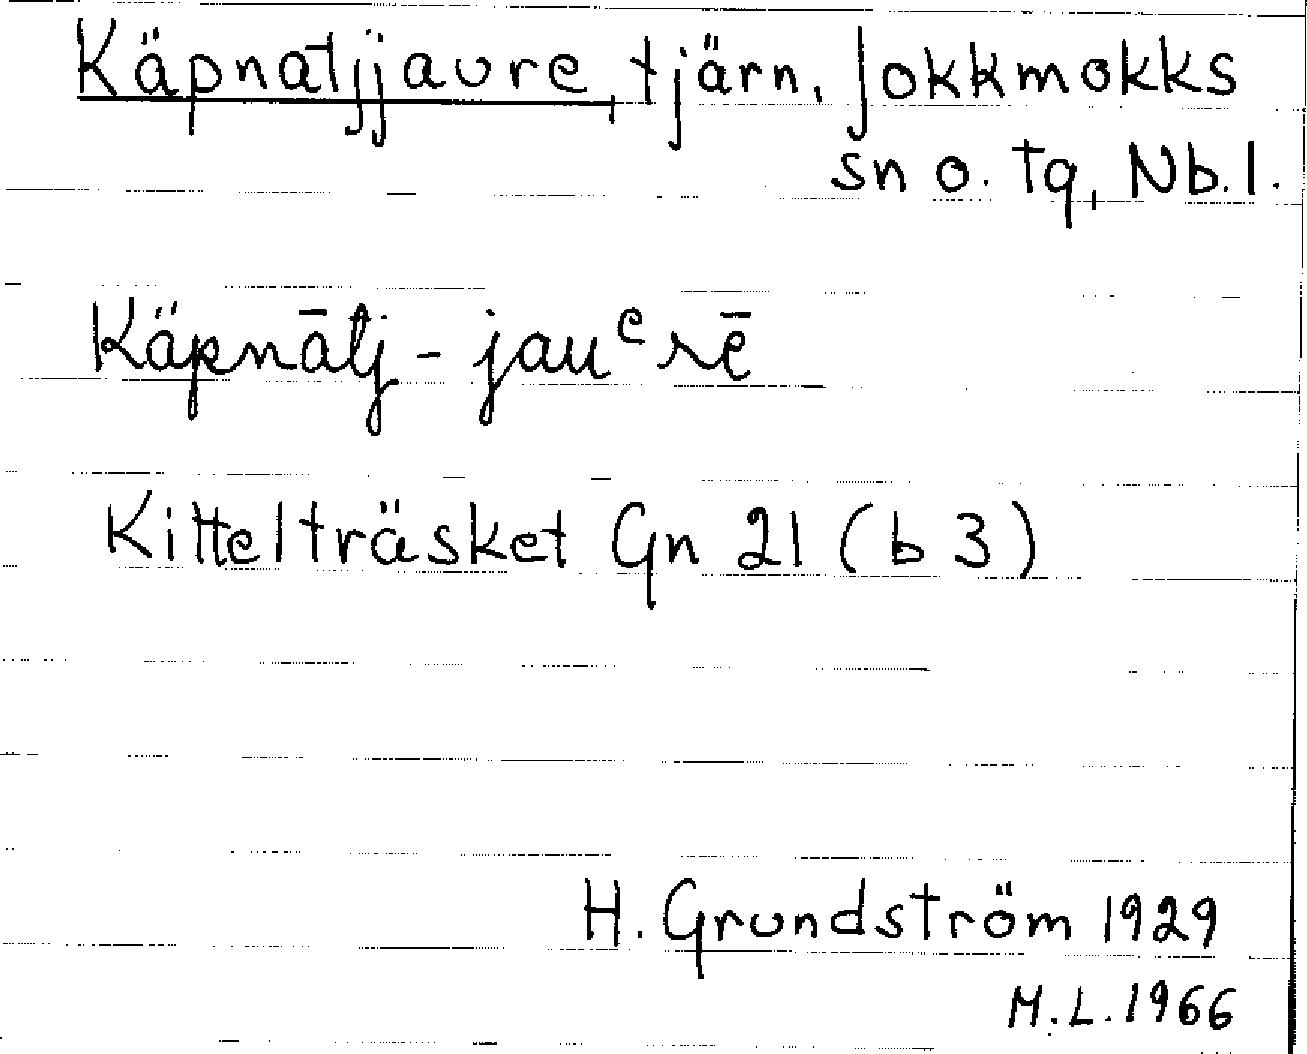 Käpnatjjaure, tjärn, Jokkmokks
sn o. tg, Nb. l.
Käpnātj - jauᵉrē
Kittelträsket Gn 21 (b 3)
H. Grundström 1929
M.L. 1966